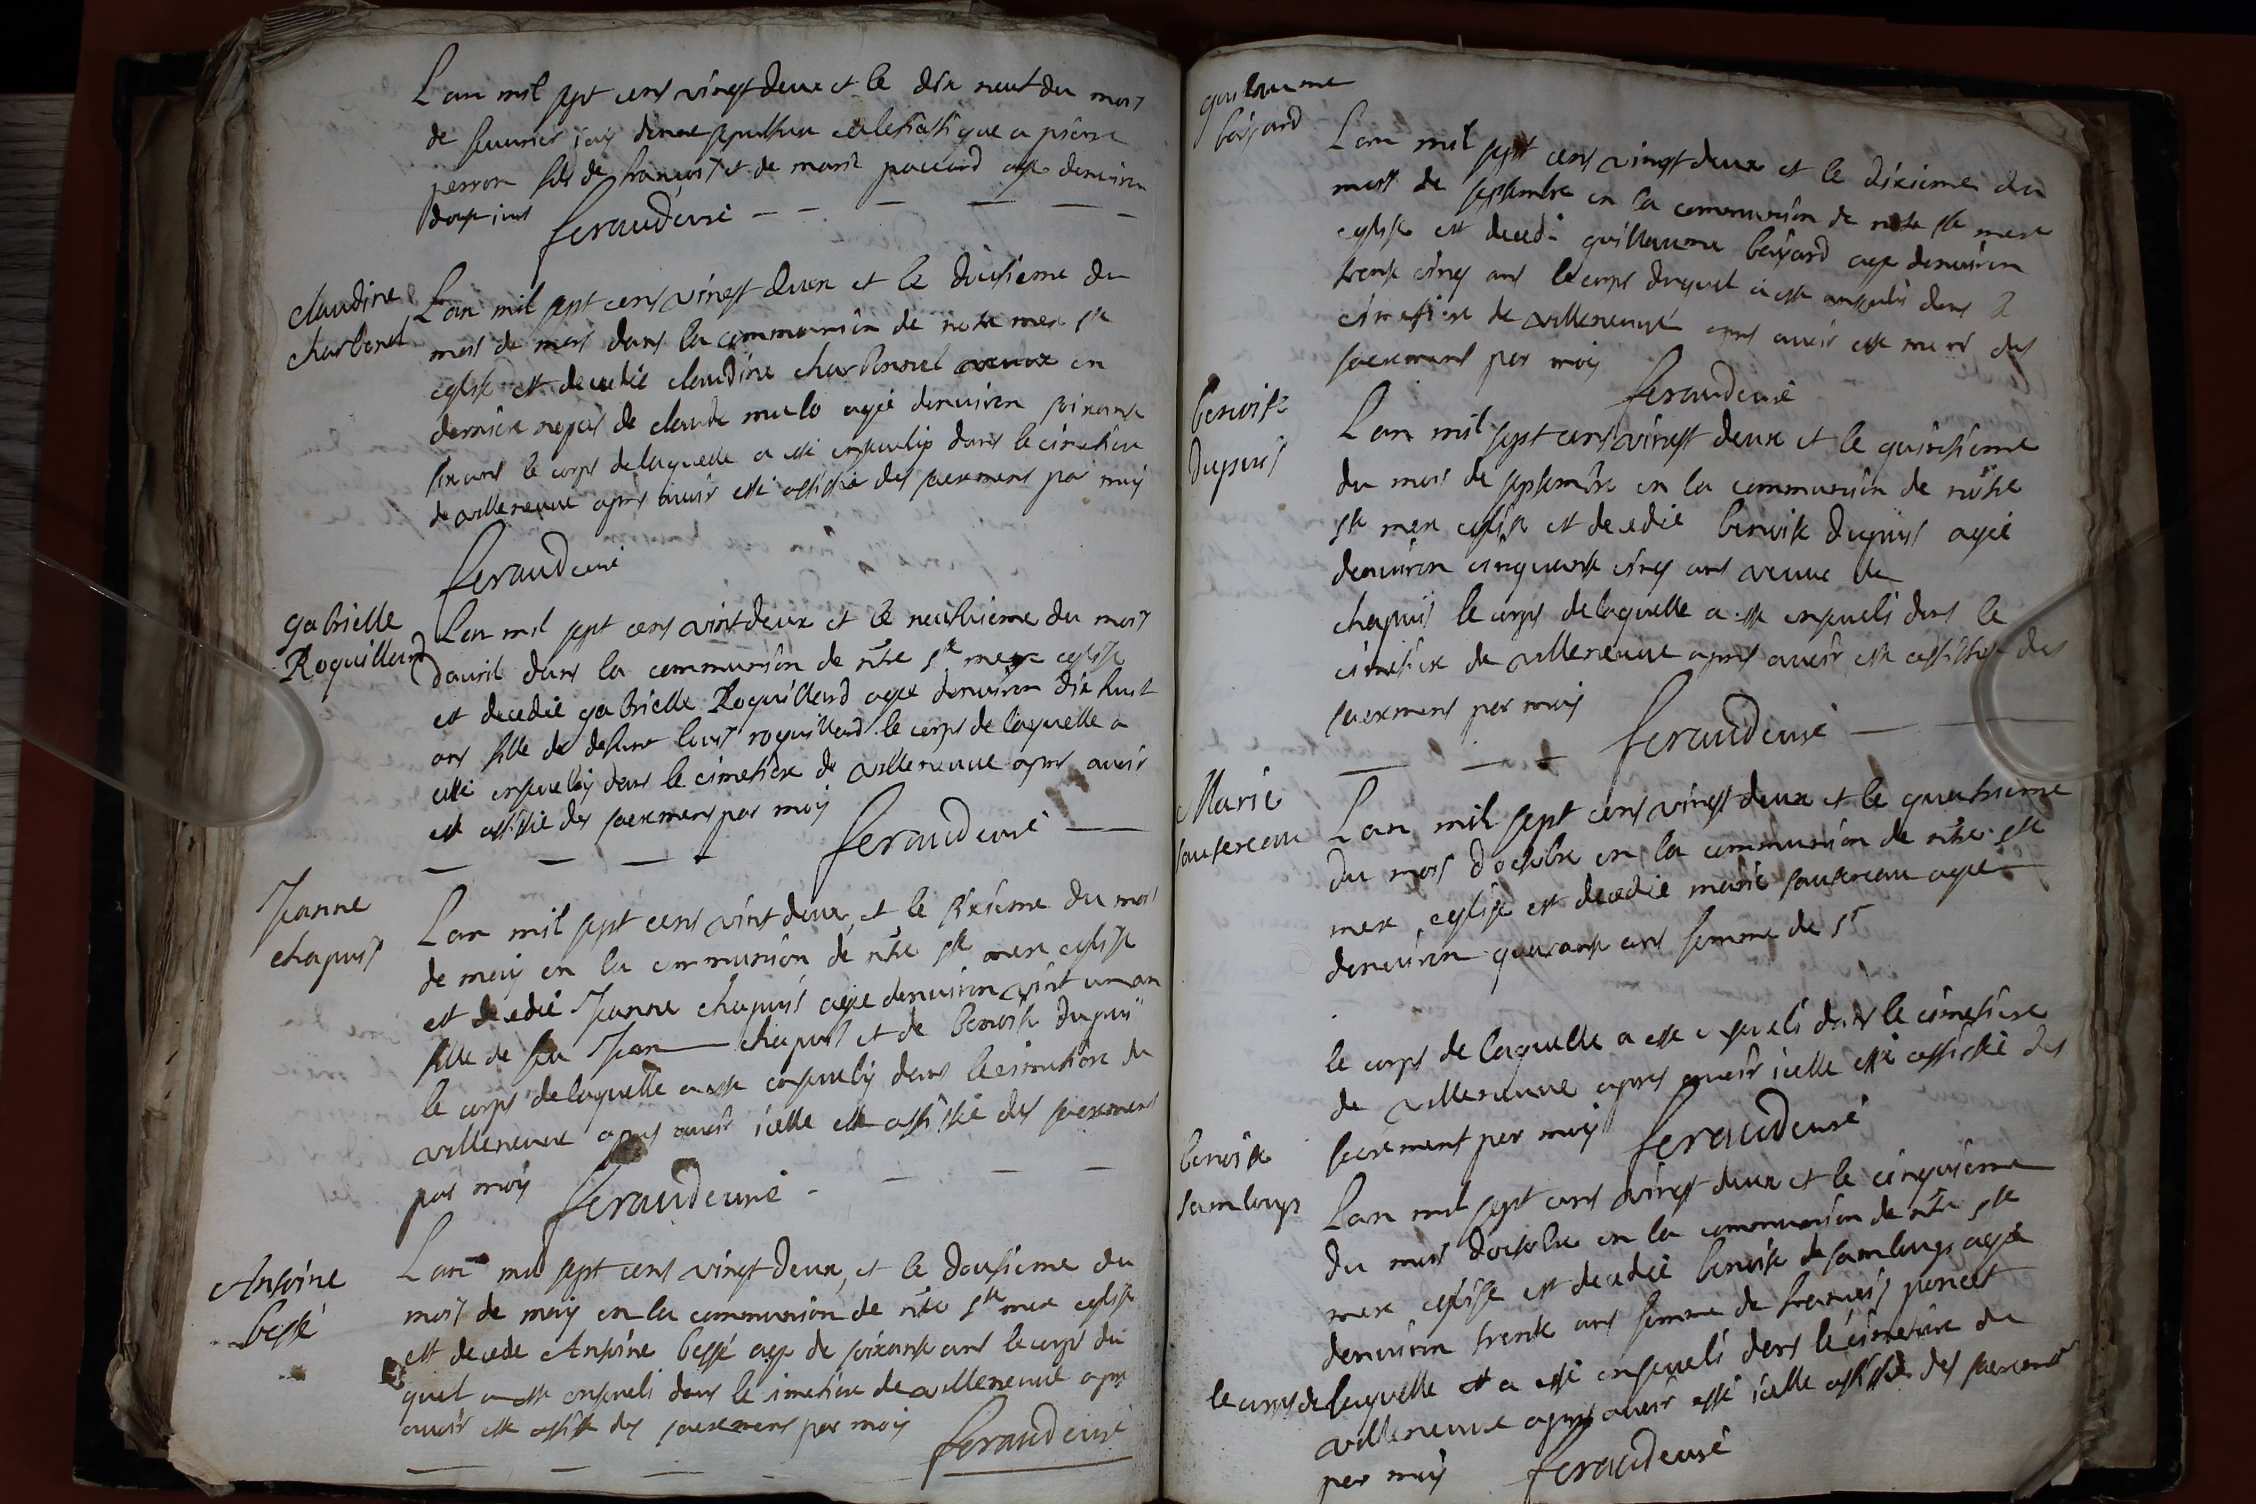 Lan mil sept cens vingt deux et le dix neuf du mois
de feuurier jay donné sepulture eclesiastique a pierre
perron fils de francois et de marie paccard age denuiron
doze jours feraud curé
claudine
charbonel
Lan mil sept cens vingt deux et le deusieme du
mois de mars dans la communion de notre mere ste
eglise est decedée claudine charbonnel veuue en
derniere nopces de claude mulo agée denuiron soixante
six ans le corps de laquelle a esté enseuelie dans le cimetiere
de villeneuue apres auoir esté assistée des sacremens par moy
feraud curé
gabrielle
Roquillard
Lan mil sept cens vint deux et le neufuieme du mois
dauril dans la communion de ntre ste mere eglise
est decedée gabrielle Roquillard agée denuiron dix huit
ans fille de defunt louis roquillard le corps de laquelle a
esté enseuely dans le cimetiere de villeneuue apres auoir
esté assistée des sacremens par moy
feraud curé
Jeanne
chapuis
Lan mil sept cens vint deux et le sixieme du mois
de may en la communion de ntre ste mere eglise
est decedée Jeanne chapuis agée denuiron vint un an
fille de feu Jean chapuis et de benoite dupuis
le corps de laquelle a esté enseuely dans le cimetiere de
villeneuue apres auoir icelle esté assistée des sacremens
par moy feraud curé
Antoine
bessé
Lan mil sept cens vingt deux, et le dousieme du
mois de may en la communion de ntre ste mere eglise
est decede Antoine bessé age de soixante ans le corps du
quel a esté enseueli dans le cimetiere de villeneuue apres
auoir esté assisté des sacremens par moy feraud curé
guillaume
bayard
Lan mil sept cens vingt deux et le dixieme du
mois de septembre en la communion de notre ste mere
eglise est decedé guillaume bayard age denuiron
trente cinq ans le corps duquel a esté enseueli dans le
cimetiere de villeneuue apres auoir esté muni des
sacremens par moy
feraud curé
benoite
dupuis
Lan mil sept cens vingt deux et le quinsieme
du mois de septembre en la communion de nôtre
ste mere eglise est decedée benoite dupuis agée
denuiron cinquante cinq ans veuue de
chapuis le corps de laquelle a esté enseueli dans le
cimetiere de villeneuue apres auoir esté assistée des
sacremens par moy
feraud curé
Marie
sautereau
Lan mil sept cens vingt deux et le quatrieme
du mois doctobre en la communion de ntre ste
mere eglise est decedée marie sautereau agée
denuiron quarante ans femme de sr
le corps de laquelle a esté enseueli dans le cimetiere
de villeneuue apres auoir icelle esté assistée des
sacremens par moy feraud curé
benoite
samloup
Lan mil sept cens vingt deux et le cinquieme
du mois doctobre en la communion de ntre ste
mere eglise est decedée benoite de samloup agée
denuiron trente ans femme de francois poncet
le corps de laquelle et a esté enseueli dans le cimetiere de
villeneuue apres auoir esté icelle assistée des sacremens
par moy feraud curé